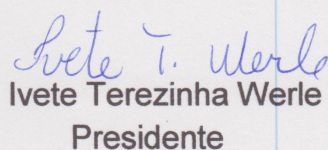 Ivete T. Werle
Ivete Terezinha Werle
Presidente